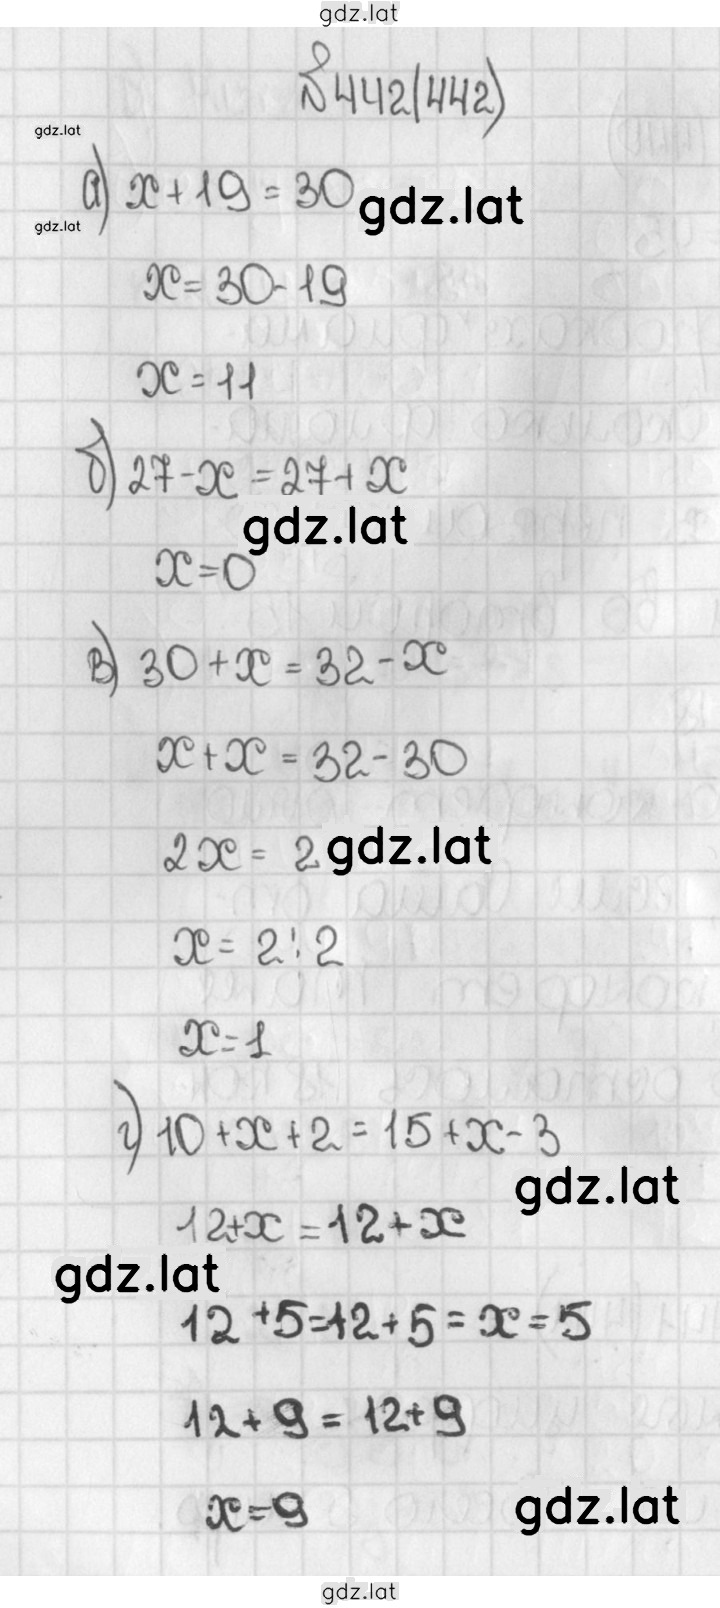 gdz.lat
№442(442)
gdz.lat
а) x + 19 = 30
gdz.lat
gdz.lat
x = 30 - 19
x = 11
б) 27 - x = 27 + x
gdz.lat
x = 0
в) 30 + x = 32 - x
x + x = 32 - 30
2x = 2
gdz.lat
x = 2 : 2
x = 1
г) 10 + x + 2 = 15 + x - 3
gdz.lat
12 + x = 12 + x
gdz.lat
12 + 5 = 12 + 5 = x = 5
12 + 9 = 12 + 9
x = 9
gdz.lat
gdz.lat